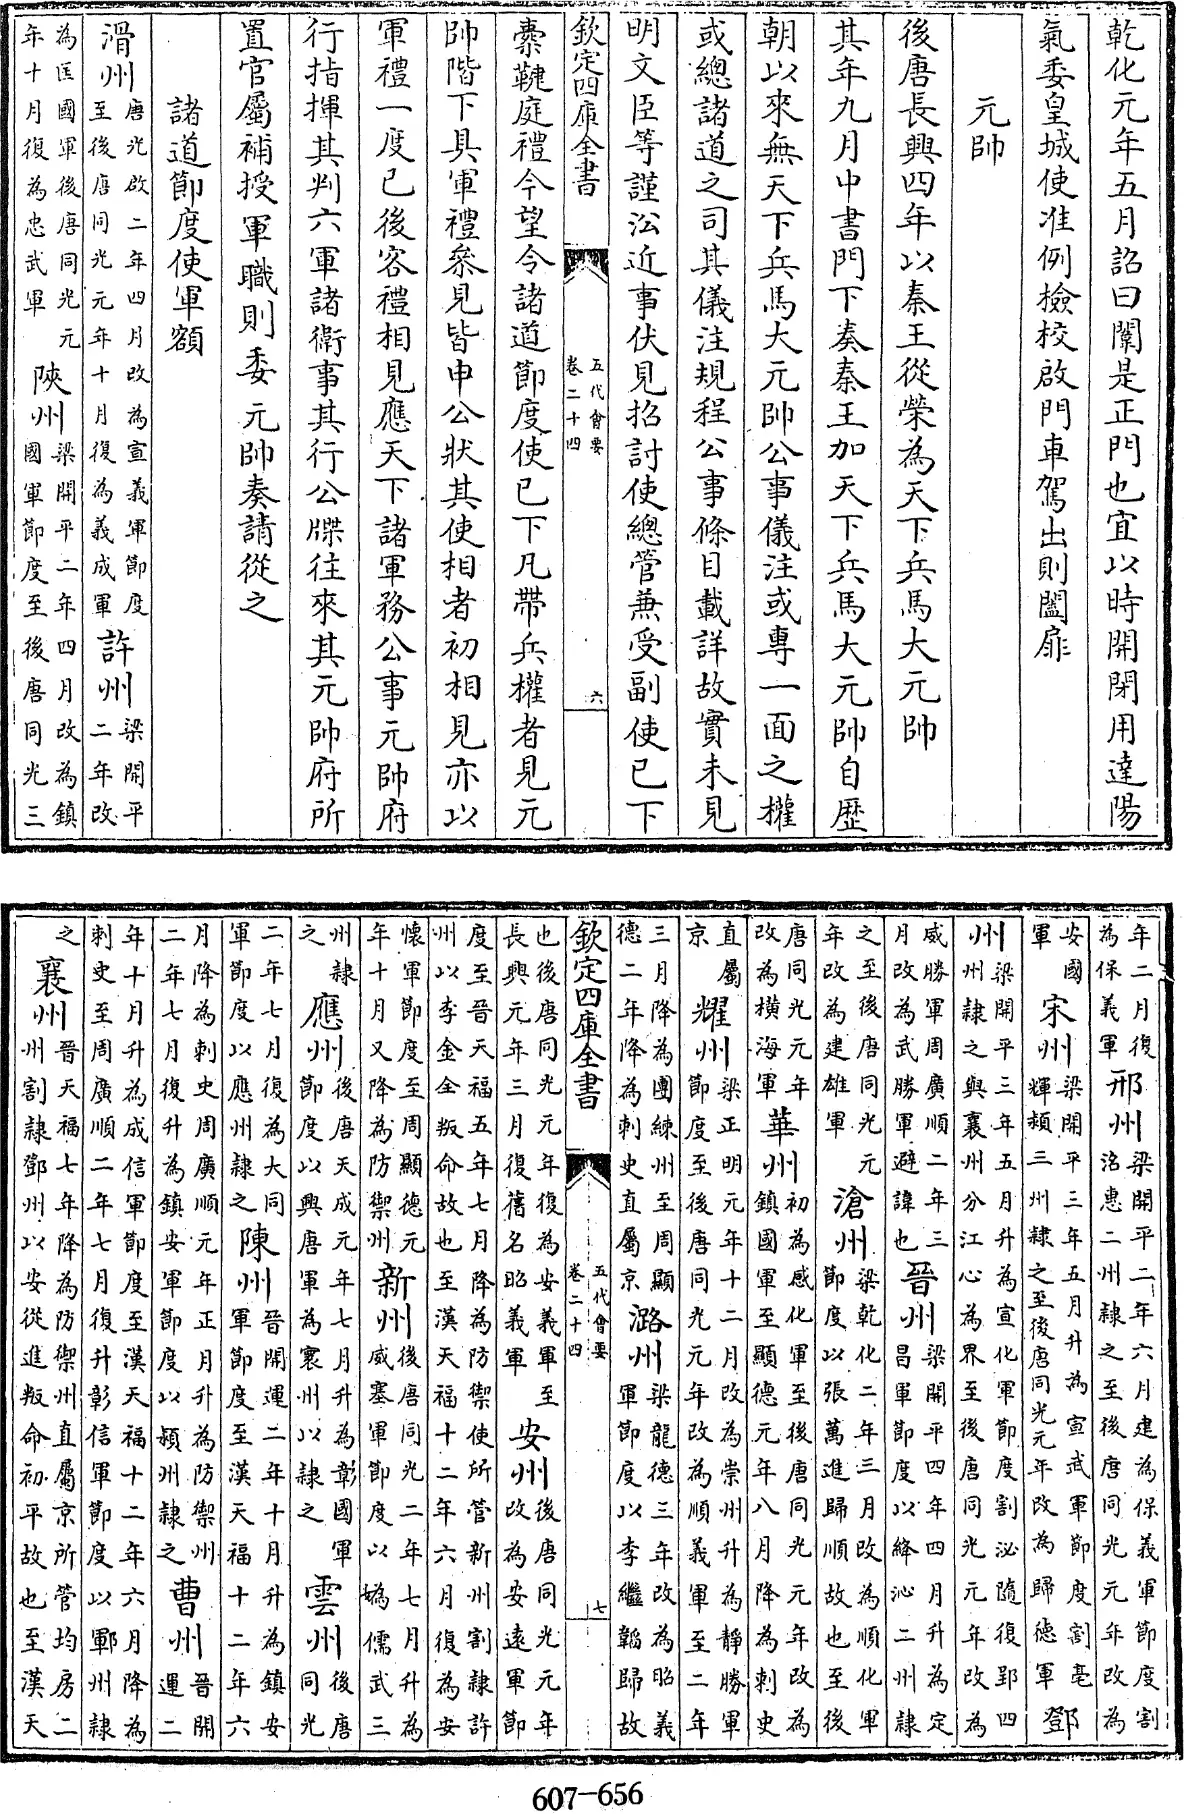 乾化元年五月詔曰闈是正門也宜以時開閉用達陽
氣委皇城使准例檢校啟門車駕出則闔扉
元帥
後唐長興四年以秦王從榮為天下兵馬大元帥
其年九月中書門下奏秦王加天下兵馬大元帥自歴
朝以來無天下兵馬大元帥公事儀注或專一面之權
或總諸道之司其儀注規程公事條目載詳故實未見
明文臣等謹㳂近事伏見招討使總管兼受副使已下
欽定四庫全書 五代會要 卷二十四 六
櫜鞬庭禮今望令諸道節度使已下凡帶兵權者見元
帥階下具軍禮叅見皆申公狀其使相者初相見亦以
軍禮一度已後客禮相見應天下諸軍務公事元帥府
行指揮其判六軍諸衛事其行公牒往來其元帥府所
置官屬補授軍職則委元帥奏請從之
諸道節度使軍額
滑州唐光啟二年四月改為宣義軍節度至後唐同光元年十月復為義成軍許州梁開平二年改
為匡國軍後唐同光元年十月復為忠武軍陝州梁開平二年四月改為鎮國軍節度至後唐同光三
年二月復為保義軍邢州梁開平二年六月建為保義軍節度割洺惠二州隸之至後唐同光元年改為
安國軍宋州梁開平三年五月升為宣武軍節度割亳輝潁三州隸之至後唐同光元年改為歸德軍鄧
州梁開平三年五月升為宣化軍節度割泌隨復郢四州隸之與襄州分江心為界至後唐同光元年改為
威勝軍周廣順二年三月改為武勝軍避諱也晉州梁開平四年四月升為定昌軍節度以絳沁二州隸
之至後唐同光元年改為建雄軍滄州梁乾化二年三月改為順化軍節度以張萬進歸順故也至後
唐同光元年改為橫海軍華州初為感化軍至後唐同光元年改為鎮國軍至顯德元年八月降為刺史
直屬京耀州梁正明元年十二月改為崇州升為靜勝軍節度至後唐同光元年改為順義軍至二年
三月降為團練州至周顯德二年降為刺史直屬京潞州梁龍德三年改為昭義軍節度以李繼韜歸故
欽定四庫全書 五代會要 卷二十四 七
也後唐同光元年復為安義軍至長興元年三月復舊名昭義軍安州後唐同光元年改為安遠軍節
度至晉天福五年七月降為防禦使所管新州割隸許州以李金全叛命故也至漢天福十二年六月復為安
懷軍節度至周顯德元年十月又降為防禦州新州後唐同光二年七月升為威塞軍節度以媯儒武三
州隸之應州後唐天成元年七月升為彰國軍節度以興唐軍為寰州以隸之雲州後唐同光
二年七月復為大同軍節度以應州隸之陳州晉開運二年十月升為鎮安軍節度至漢天福十二年六
月降為刺史周廣順元年正月升為防禦州二年七月復升為鎮安軍節度以潁州隸之曹州晉開運二
年十月升為成信軍節度至漢天福十二年六月降為刺史至周廣順二年七月復升彰信軍節度以鄆州隸
之襄州晉天福七年降為防禦州直屬京所管均房二州割隸鄧州以安從進叛命初平故也至漢天
607-656